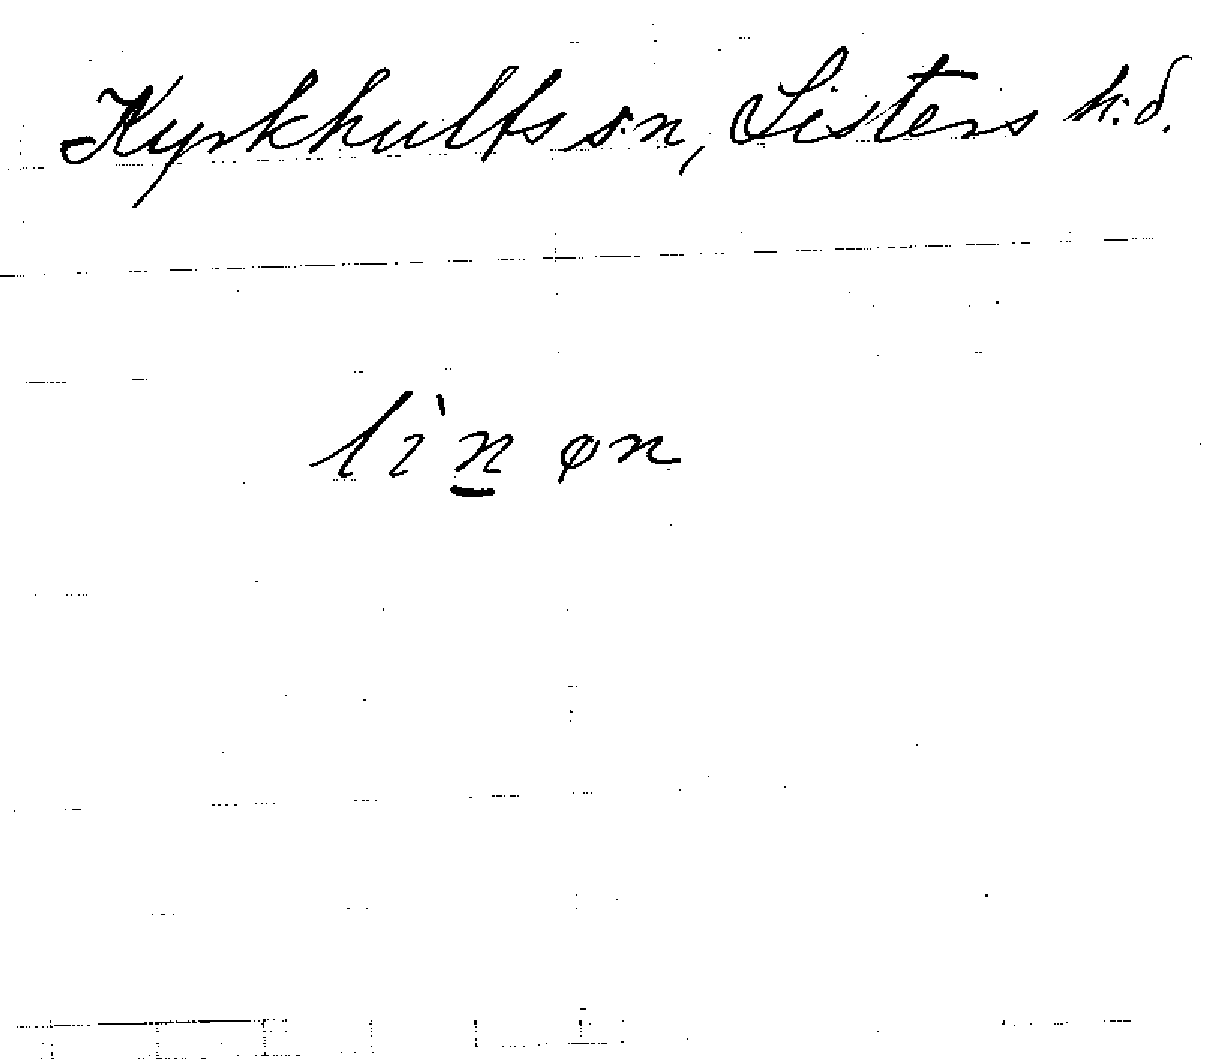 Kyrkhults s:n, Listers h:d.
li'n øn